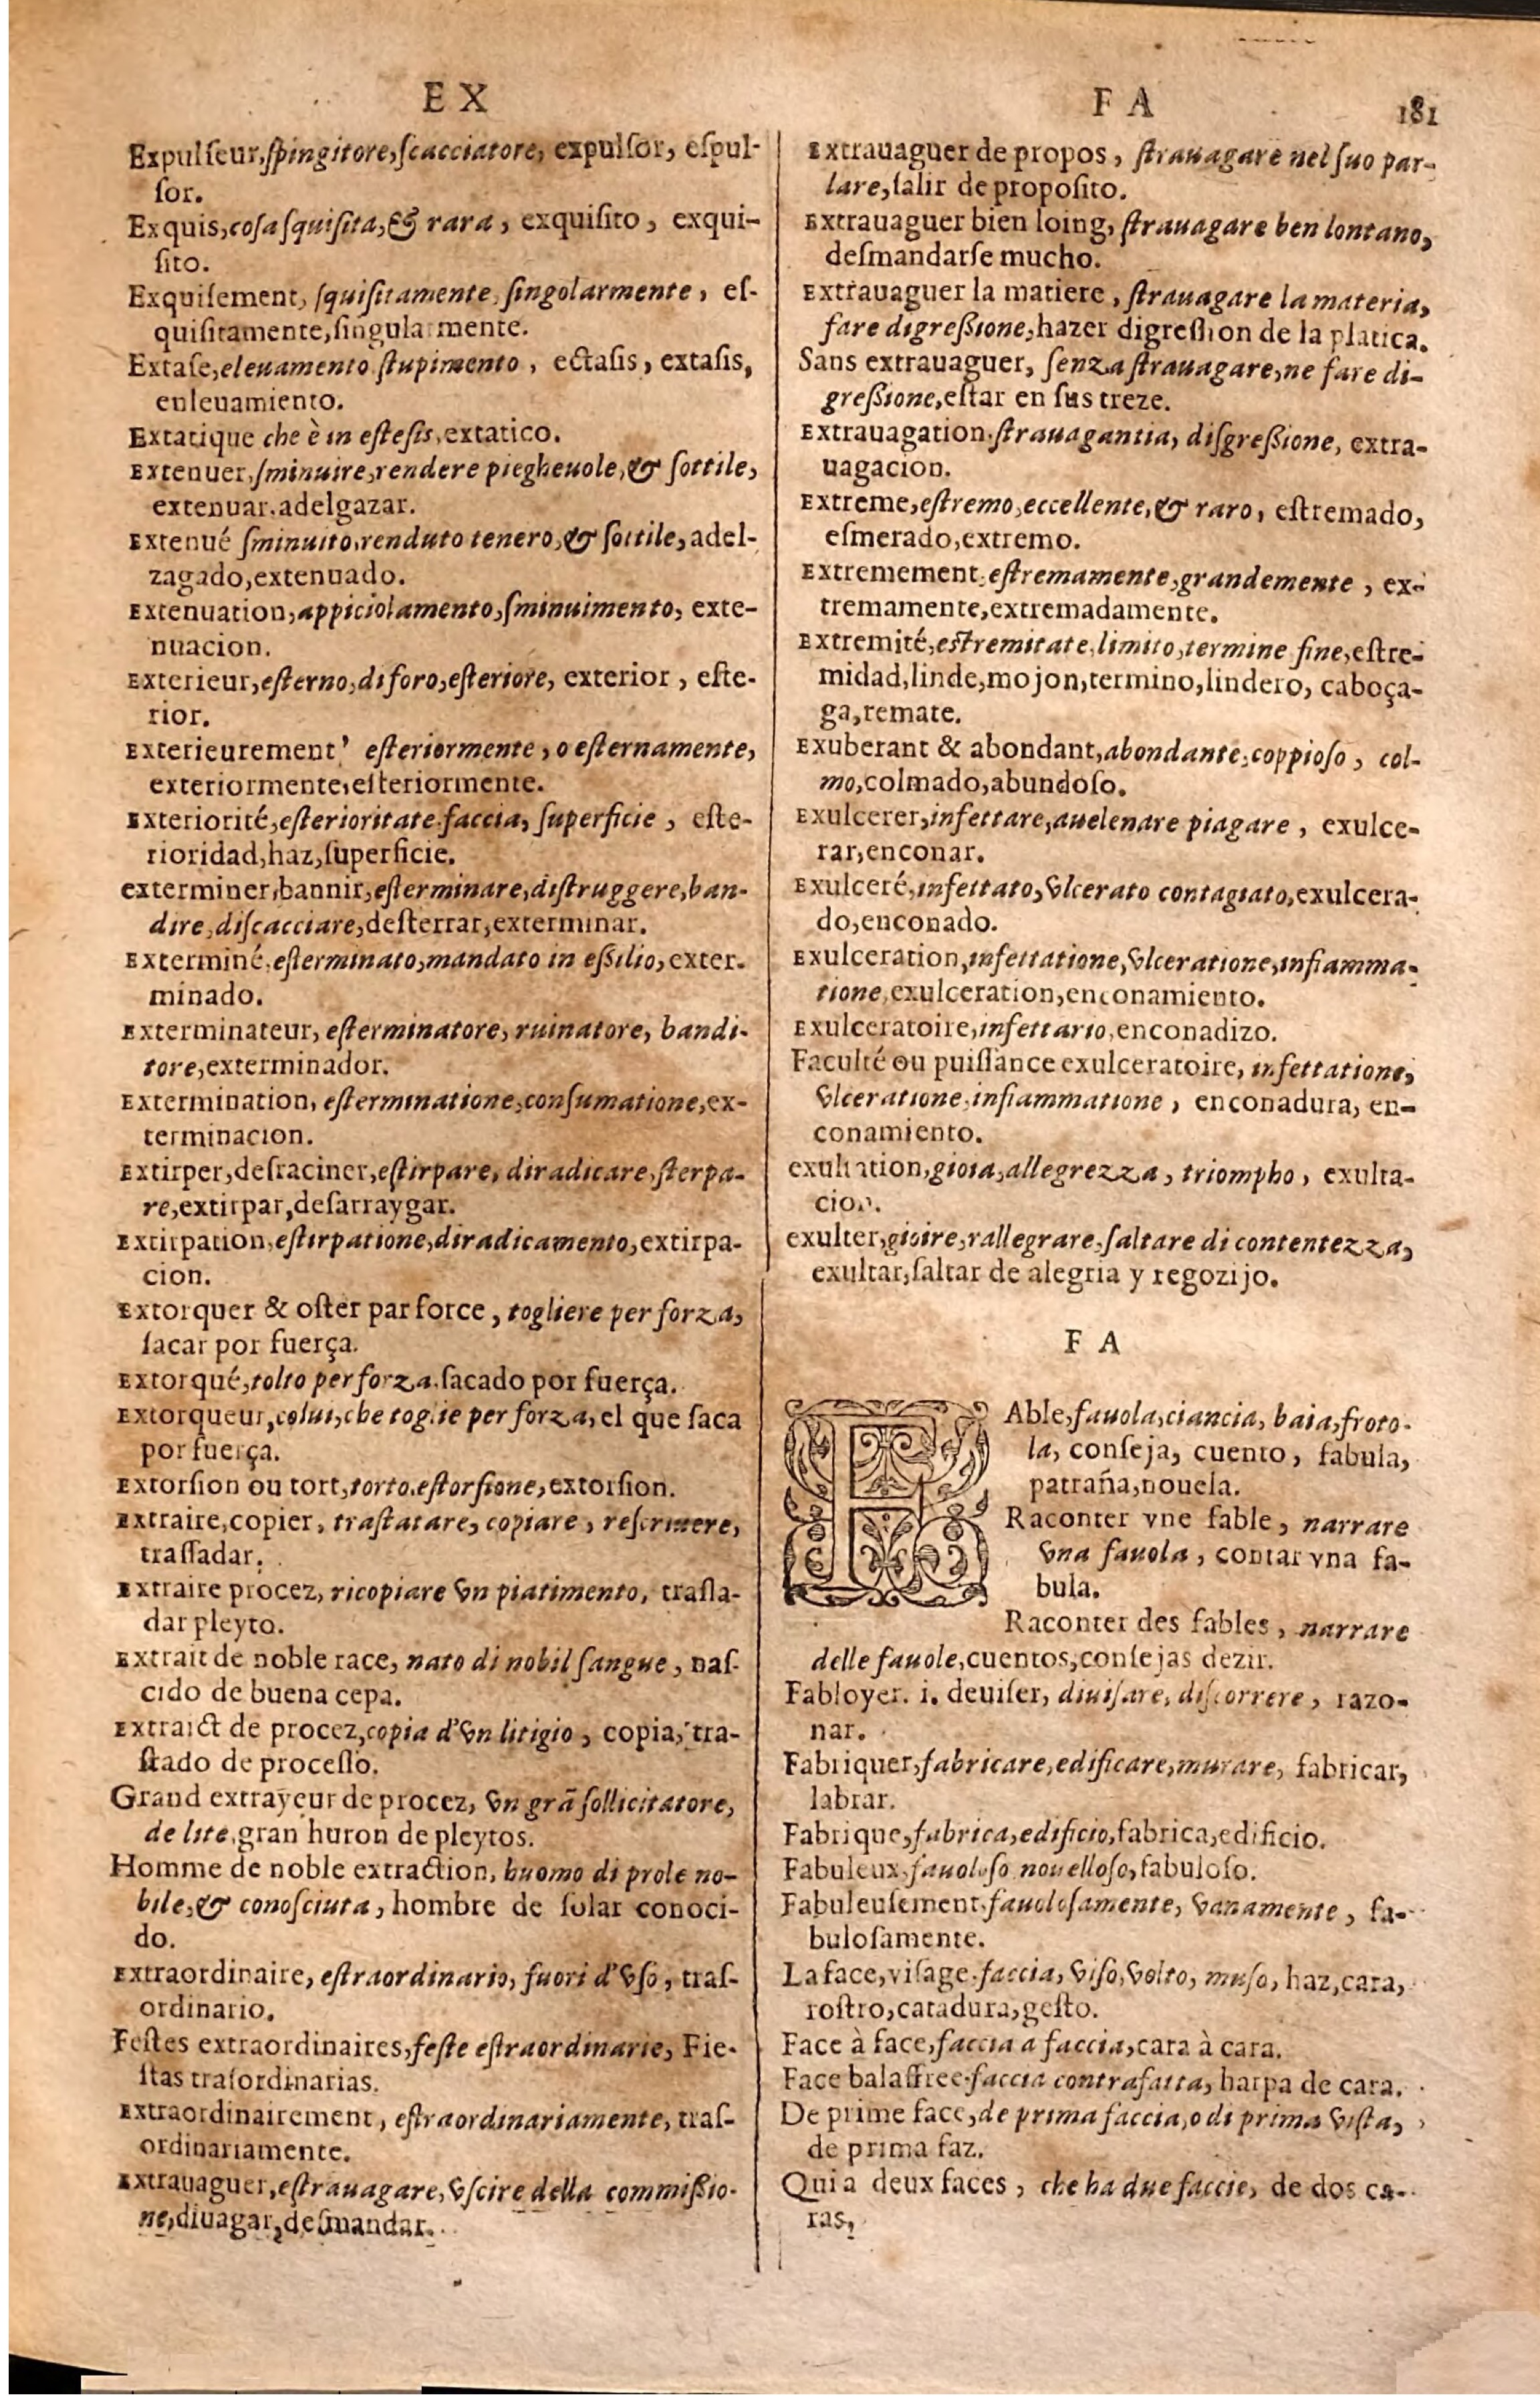 EX
FA
181
Expulſeur,ſpingitore,ſcacciatore, expulſor, eſpul-
ſor.
Exquis,coſa ſquiſita,& rara, exquiſito, exqui-
ſito.
Exquiſement, ſquiſitamente, ſingolarmente, eſ-
quiſitamente,ſingularmente.
Extaſe,eleuamento ſtupimento, ectaſis, extaſis,
enleuamiento.
Extatique che è in eſteſis,extatico.
Extenuer,ſminuire,rendere piegheuole,& ſottile,
extenuar.adelgazar.
Extenué ſminuito,renduto tenero,& ſottile,adel-
zagado,extenuado.
Extenuation,appiciolamento,ſminuimento, exte-
nuacion.
Exterieur,eſterno,di foro,eſteriore, exterior, eſte-
rior.
Exterieurement' eſteriormente, o eſternamente,
exteriormente,eſteriormente.
Exteriorité,eſterioritate.faccia, ſuperficie, eſte-
rioridad,haz,ſuperficie.
exterminer,bannir,eſterminare,diſtruggere,ban-
dire,diſcacciare,deſterrar,exterminar.
Exterminé,eſterminato,mandato in eſsilio,exter.
minado.
Exterminateur, eſterminatore, ruinatore, bandi-
tore,exterminador.
Extermination, eſterminatione,conſumatione,ex-
terminacion.
Extirper,deſraciner,eſtirpare, diradicare,ſterpa-
re,extirpar,deſarraygar.
Extirpation,eſtirpatione,diradicamento,extirpa-
cion.
Extorquer & oſter par force, togliere per forza,
ſacar por fuerça.
Extorqué,tolto per forza.ſacado por fuerça.
Extorqueur,colui,che toglie per forza,el que ſaca
por fuerça.
Extorſion ou tort,torto.eſtorſione,extorſion.
Extraire,copier, traſtatare, copiare, reſcriuere,
traſſadar.
Extraire procez, ricopiare vn piatimento, traſla-
dar pleyto.
Extrait de noble race, nato di nobil ſangue, naſ-
cido de buena cepa.
Extraict de procez,copia d'vn litigio, copia, tra-
ſtado de proceſſo.
Grand extrayeur de procez, vn grã ſollicitatore,
de lite,gran huron de pleytos.
Homme de noble extraction, huomo di prole no-
bile,& conoſciuta, hombre de ſolar conoci-
do.
Extraordinaire, eſtraordinario, fuori d'vſo, traſ-
ordinario.
Feſtes extraordinaires,feſte eſtraordinarie, Fie-
ſtas traſordinarias.
Extraordinairement, eſtraordinariamente, traſ-
ordinariamente.
Extrauaguer,eſtrauagare,vſcire della commiſsio-
ne,diuagar,deſmandar.
Extrauaguer de propos, ſtrauagare nel ſuo par-
lare,ſalir de propoſito.
Extrauaguer bien loing, ſtrauagare ben lontano,
deſmandarſe mucho.
Extrauaguer la matiere, ſtrauagare la materia,
fare digreſsione,hazer digreſſion de la platica.
Sans extrauaguer, ſenza ſtrauagare,ne fare di-
greſsione,eſtar en ſus treze.
Extrauagation.ſtrauagantia, diſgreſsione, extra-
uagacion.
Extreme,eſtremo,eccellente,& raro, eſtremado,
eſmerado,extremo.
Extremement,eſtremamente,grandemente, ex-
tremamente,extremadamente.
Extremité,eſtremitate,limito,termine fine,eſtre-
midad,linde,mojon,termino,lindero, caboça-
ga,remate.
Exuberant & abondant,abondante,coppioſo, col-
mo,colmado,abundoſo.
Exulcerer,infettare,auelenare piagare, exulce-
rar,enconar.
Exulceré,infettato,vlcerato contagiato,exulcera-
do,enconado.
Exulceration,infettatione,vlceratione,infiamma-
tione,exulceration,enconamiento.
Exulceratoire,infettario,enconadizo.
Faculté ou puiſſance exulceratoire, infettatione,
vlceratione,infiammatione, enconadura, en-
conamiento.
exultation,gioia,allegrezza, triompho, exulta-
cion.
exulter,gioire,rallegrare,ſaltare di contentezza,
exultar,ſaltar de alegria y regozijo.
FA
FAble,fauola,ciancia, baia,froto-
la, conſeja, cuento, fabula,
patraña,nouela.
Raconter vne fable, narrare
vna fauola, contar vna fa-
bula.
Raconter des fables, narrare
delle fauole,cuentos,conſejas dezir.
Fabloyer. i. deuiſer, diuiſare, diſcorrere, razo-
nar.
Fabriquer,fabricare,edificare,murare, fabricar,
labrar.
Fabrique,fabrica,edificio,fabrica,edificio.
Fabuleux,fauoloſo nouelloſo,fabuloſo.
Fabuleuſement,fauoloſamente, vanamente, fa-
buloſamente.
La face,viſage.faccia, viſo,volto, muſo, haz,cara,
roſtro,catadura,geſto.
Face à face,faccia a faccia,cara à cara.
Face balaffree.faccia contrafatta, harpa de cara.
De prime face,de prima faccia,o di prima viſta,
de prima faz.
Qui a deux faces, che ha due faccie, de dos ca-
ras,